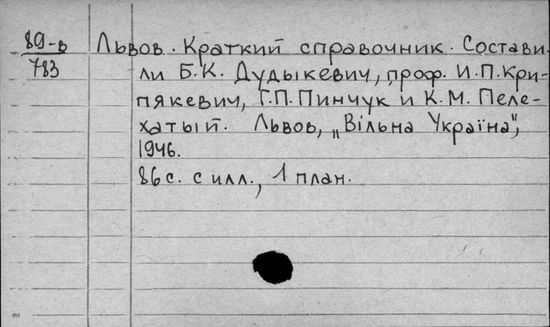 89-в
783
Львов. Краткий справочник. Состави-
ли Б.К. Дудыкевич, проф. И.П.Кри-
пякевич, Г.П.Пинчук и К.М.Пеле-
хатый. Львов, „Вільна Україна",
1946.
86 с. с илл., 1 план.